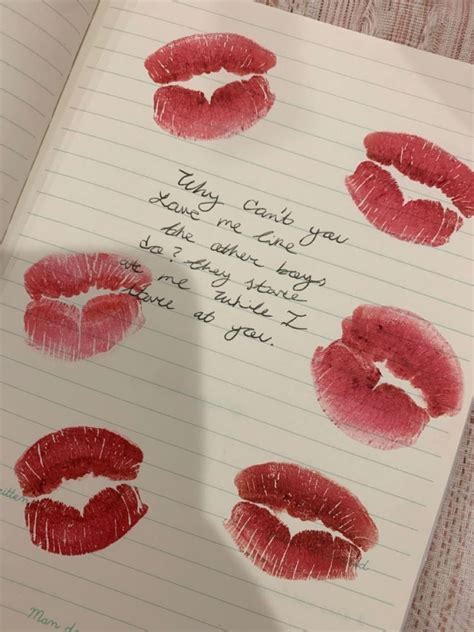 Why can't you
Love me like
the other boys
do? they stare
at me while I
stare at you.
itten
Man d